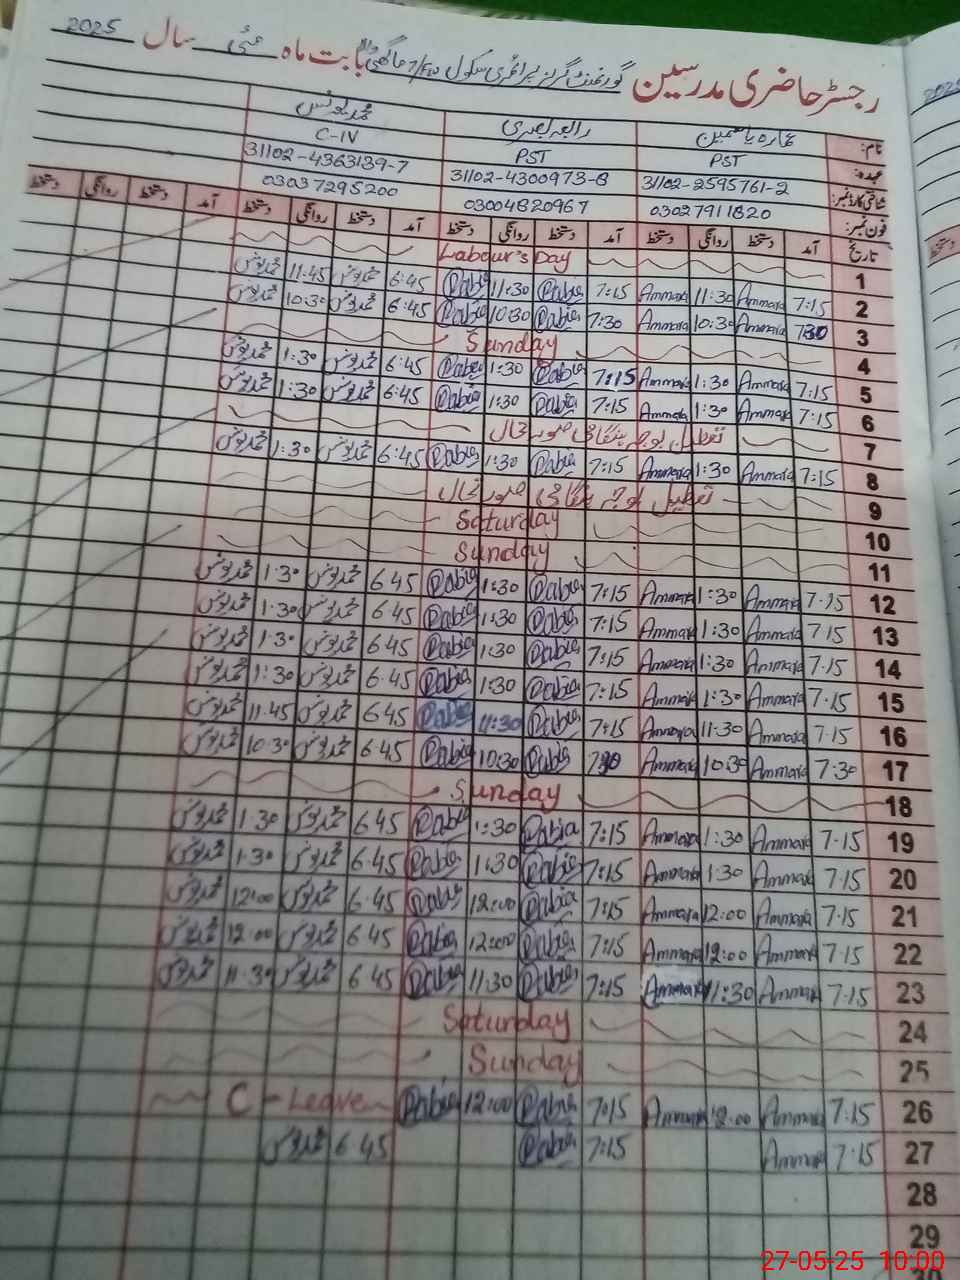 رجسٹر حاضری مدرسین گورنمنٹ گرلز پرائمری سکول 7/FW بابت ماہ مئی سال 2025
نام: عمارہ یاسمین رابعہ بصری محمد یونس
عہدہ: PST PST C-IV
شناختی کارڈ نمبر: 31102-2595761-2 31102-4300973-8 31102-4363139-7
فون نمبر: 03027911820 03004820967 03037295200
تاریخ آمد دستخط روانگی دستخط آمد دستخط روانگی دستخط آمد دستخط روانگی دستخط آمد دستخط روانگی دستخط
1 Labour's Day
2 7:15 Ammara 11:30 Ammara 7:15 Rabia 11:30 Rabia 6:45 محمد یونس 11:45 محمد یونس
3 7:30 Ammara 10:30 Ammara 7:30 Rabia 10:30 Rabia 6:45 محمد یونس 10:30 محمد یونس
4 Sunday
5 7:15 Ammara 1:30 Ammara 7:15 Rabia 1:30 Rabia 6:45 محمد یونس 1:30 محمد یونس
6 7:15 Ammara 1:30 Ammara 7:15 Rabia 1:30 Rabia 6:45 محمد یونس 1:30 محمد یونس
7 تعطیل بوجہ ہنگامی صورتحال
8 7:15 Ammara 1:30 Ammara 7:15 Rabia 1:30 Rabia 6:45 محمد یونس 1:30 محمد یونس
9 تعطیل بوجہ ہنگامی صورتحال
10 Saturday
11 Sunday
12 7:15 Ammara 1:30 Ammara 7:15 Rabia 1:30 Rabia 6:45 محمد یونس 1:30 محمد یونس
13 7:15 Ammara 1:30 Ammara 7:15 Rabia 1:30 Rabia 6:45 محمد یونس 1:30 محمد یونس
14 7:15 Ammara 1:30 Ammara 7:15 Rabia 1:30 Rabia 6:45 محمد یونس 1:30 محمد یونس
15 7:15 Ammara 1:30 Ammara 7:15 Rabia 1:30 Rabia 6:45 محمد یونس 1:30 محمد یونس
16 7:15 Ammara 11:30 Ammara 7:15 Rabia 11:30 Rabia 6:45 محمد یونس 11:45 محمد یونس
17 7:30 Ammara 10:30 Ammara Rabia 10:30 Rabia 6:45 محمد یونس 10:30 محمد یونس
18 Sunday
19 7:15 Ammara 1:30 Ammara 7:15 Rabia 1:30 Rabia 6:45 محمد یونس 1:30 محمد یونس
20 7:15 Ammara 1:30 Ammara 7:15 Rabia 1:30 Rabia 6:45 محمد یونس 1:30 محمد یونس
21 7:15 Ammara 12:00 Ammara 7:15 Rabia 12:00 Rabia 6:45 محمد یونس 12:00 محمد یونس
22 7:15 Ammara 12:00 Ammara 7:15 Rabia 12:00 Rabia 6:45 محمد یونس 12:00 محمد یونس
23 7:15 Ammara 11:30 Ammara 7:15 Rabia 11:30 Rabia 6:45 محمد یونس 11:30 محمد یونس
24 Saturday
25 Sunday
26 7:15 Ammara 12:00 Ammara 7:15 Rabia 12:00 Rabia C-Leave
27 7:15 Ammara 7:15 Rabia 6:45 محمد یونس
28
29
30
27-05-25 10:00